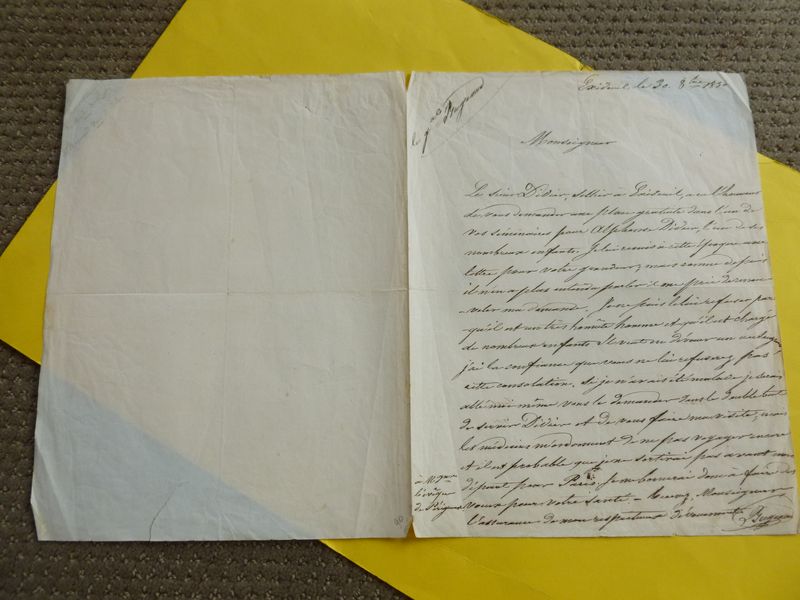 Exideuil le 30 8bre 185
le gal Bugeaud
Monseigneur
Le sieur Didier, sellier à Exideuil, a eu l'honneur
de vous demander une place gratuite dans l'un de
vos séminaires pour Alphonse Didier, l'un de ses
nombreux enfants. Je lui remis à cette époque une
lettre pour votre grandeur; mais comme depuis
il n'en a plus entendu parler il me prie de renou
-veler ma demande. Je ne puis le lui refuser par
qu'il est un très honnête homme et qu'il est chargé
de nombreux enfants. Il vient en
j'ai la confiance que vous ne lui refuserez pas
cette consolation. Si je n'avais été malade je serais
allé moi même vous le demander dans le double but
de servir Didier et de vous faire ma visite; mais
les médecins m'ordonnent de ne pas voyager encore
et il est probable que je ne sortirai pas avant mon
départ pour Paris. Je me bornerai donc à faire des
vœux pour votre santé. Monseigneur
l'assurance de mon respectueux dévouement
Bugeaud
à Mgneur
l'évêque
de Périgueux
30